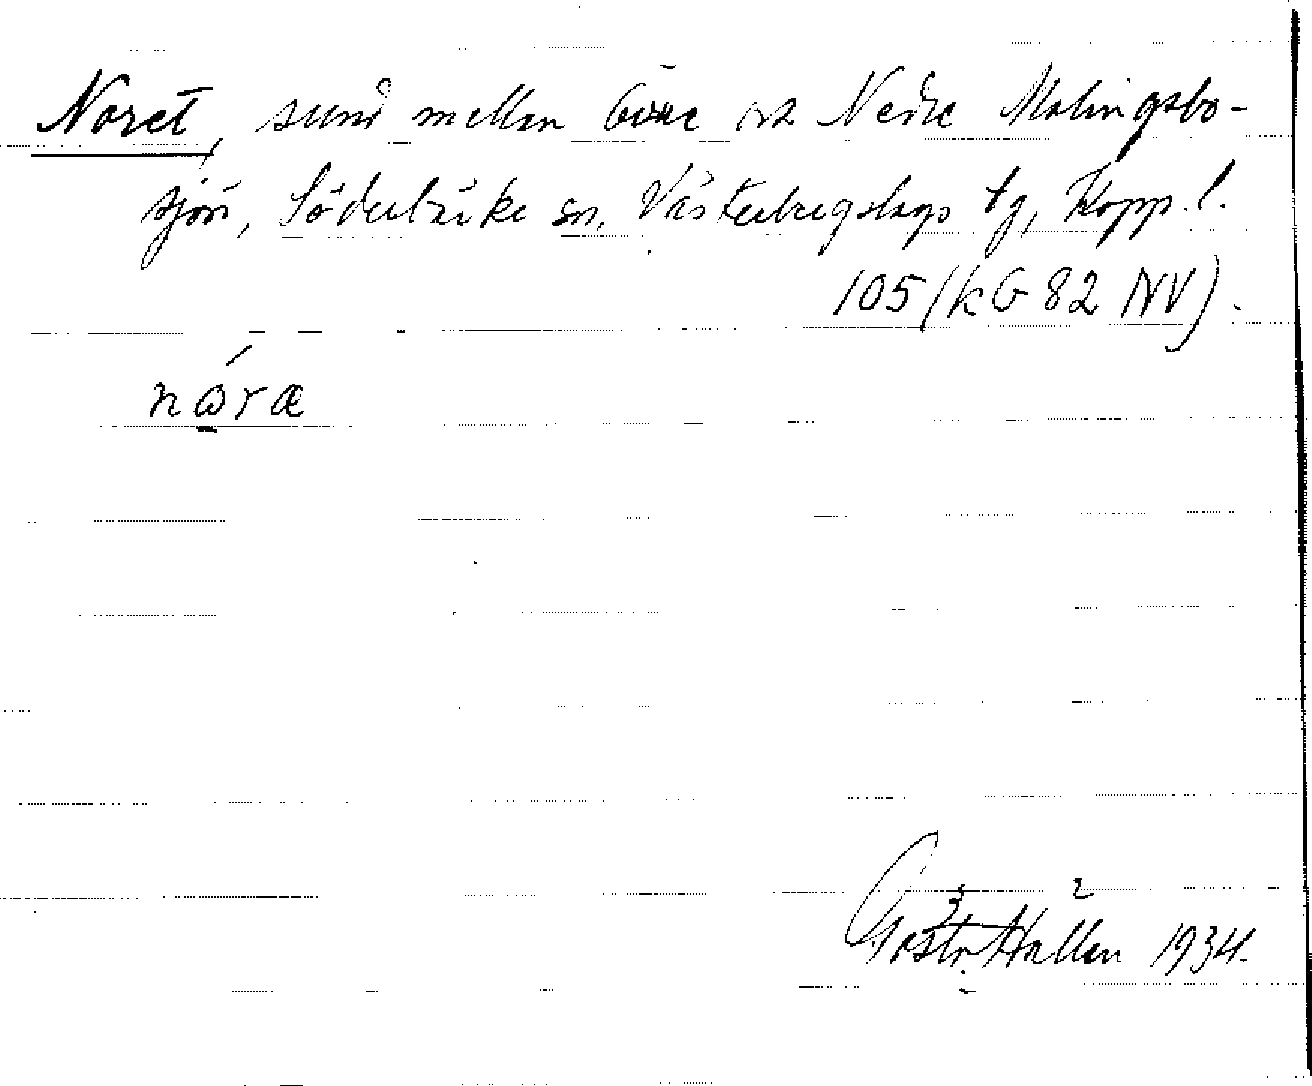 Noret, sund mellan Övre och Nedre Malingsbo-
sjön, Söderbärke sn, Västerbergslags tg, Kopp. l.
105 (kG 82 NV).
nǻra
Hallén 1934.